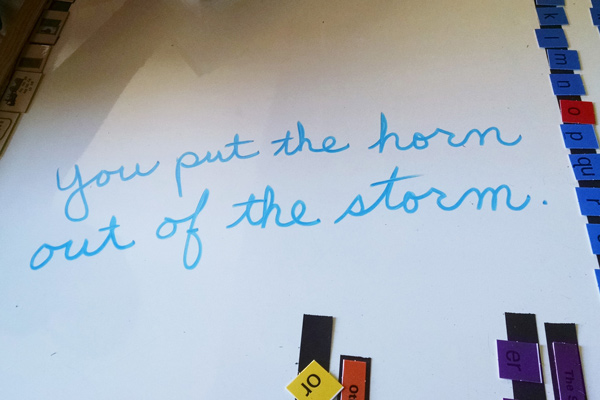 You put the horn
out of the storm.
k
l
m
n
o
p
qu
r
or
er